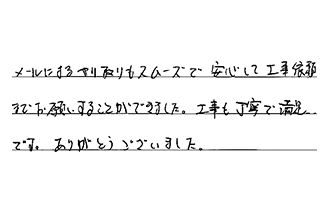 メールによるやり取りもスムーズで 安心して 工事依頼
までお願いすることができました。工事も丁寧で満足
です。ありがとうございました。